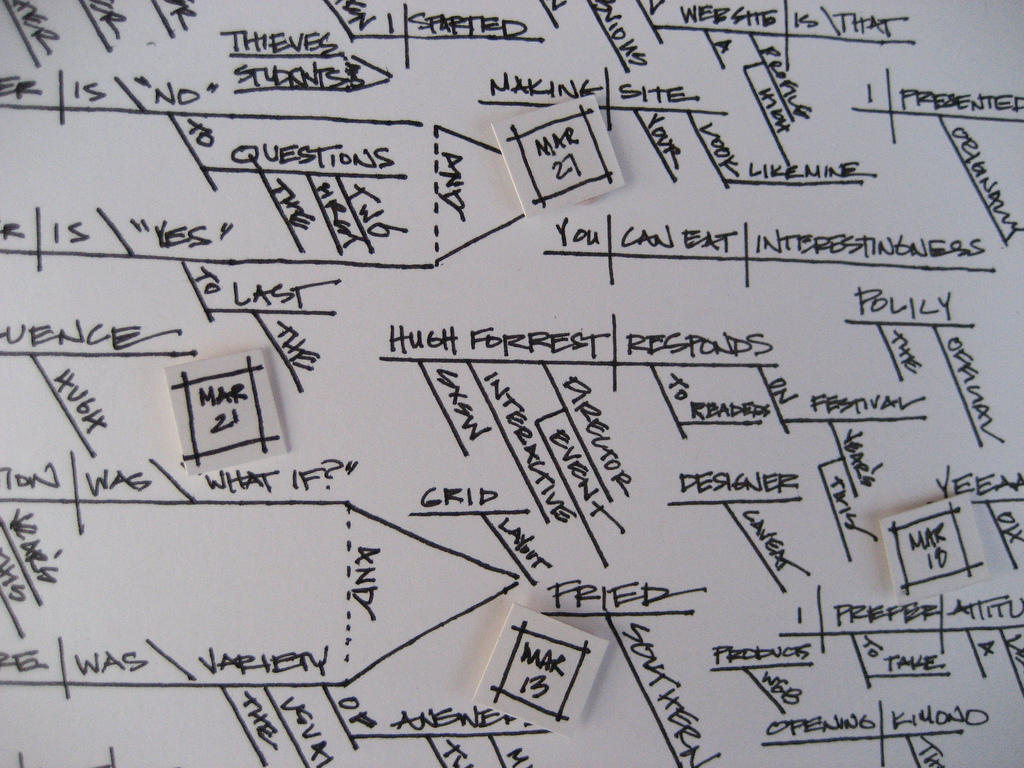 I STARTED
WEBSITE IS THAT
A
PEOPLE
THIEVES
STUDENTS
ER IS "NO"
TO
QUESTIONS
THE
FIRST
TWO
AND
MAKING SITE
YOUR
LOOK
LIKE MINE
MAR
27
I PRESENTED
ORIGINALLY
R IS "YES"
TO
LAST
THE
YOU CAN EAT INTERESTINGNESS
UENCE
HUGH
MAR
21
HUGH FORREST RESPONDS
SXSW
INTERACTIVE
EVENT
DIRECTOR
TO
READERS
ON
FESTIVAL
YEAR'S
THIS
POLILY
THE
OFFICIAL
TION WAS "WHAT IF?"
YEAR'S
THIS
AND
GRID
LAYOUT
DESIGNER
YEEAA
DIX
MAR
FRIED
SOUTHERN
MAR
13
I PREFER ATTITU
TO
TAKE
A
RE WAS VARIETY
THE
USUAL
OF
ANSWER
PRODUCTS
WEB
OPENING KIMONO
TH